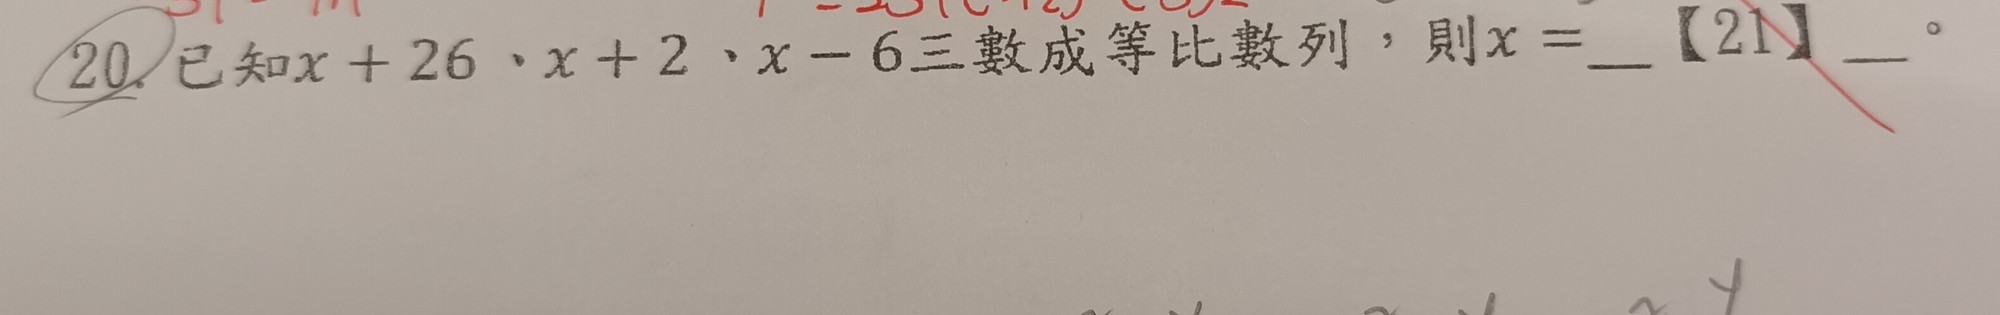 20. 已知x + 26、x + 2、x − 6三數成等比數列，則x =__【21】__。